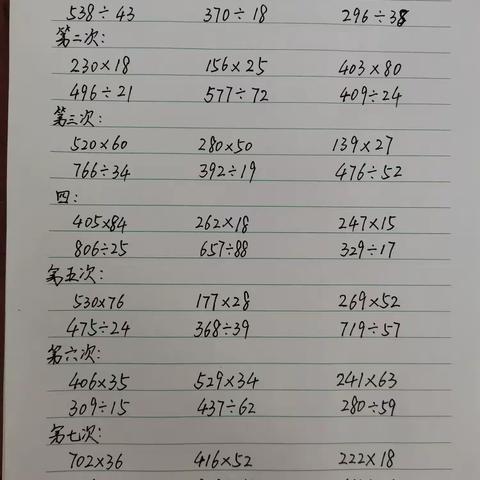 538÷43 370÷18 296÷38
第二次:
230×18 156×25 403×80
496÷21 577÷72 409÷24
第三次:
520×60 280×50 139×27
766÷34 392÷19 476÷52
四:
405×84 262×18 247×15
806÷25 657÷88 329÷17
第五次:
530×76 177×28 269×52
475÷24 368÷39 719÷57
第六次:
406×35 529×34 241×63
309÷15 437÷62 280÷59
第七次:
702×36 416×52 222×18